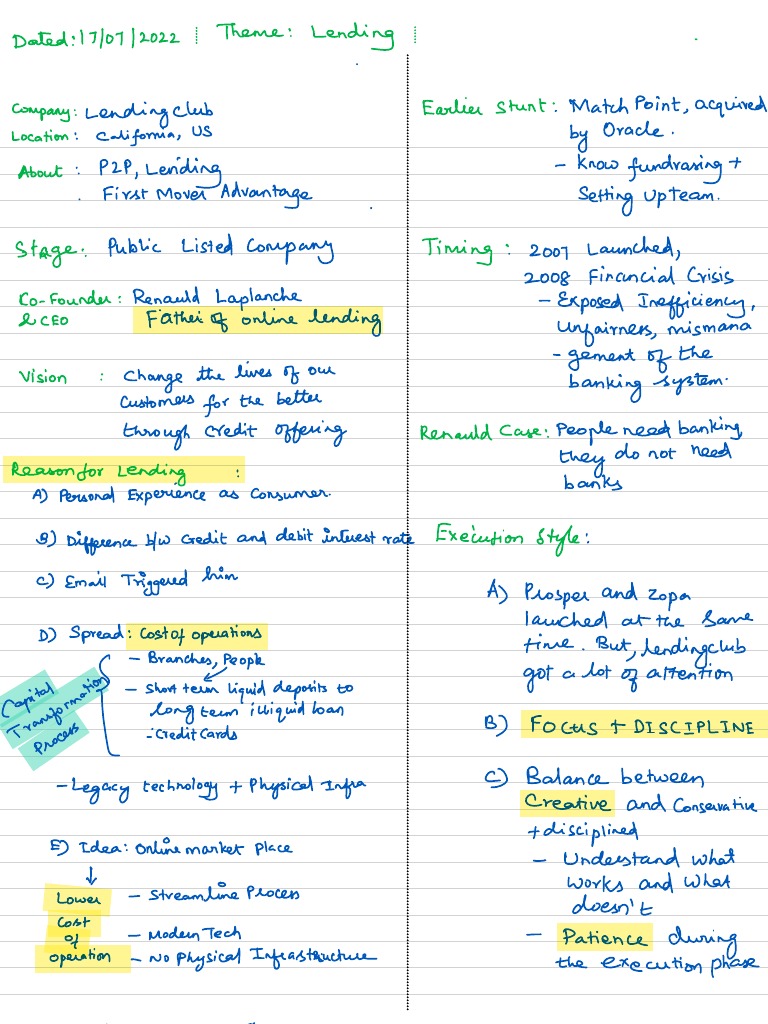 Dated: 17/07/2022 Theme: Lending
Company: Lendingclub
Location: California, US
About : P2P, Lending
First Mover Advantage
Stage: Public Listed Company
Co-Founder : Renauld Laplanche
& CEO Father of online lending
Vision : Change the lives of our
customers for the better
through credit offering
Reason for Lending :
A) Personal Experience as Consumer.
B) Difference b/w credit and debit interest rate
C) Email Triggered him
D) Spread : Cost of operations
- Branches, People
- Short term liquid deposits to
long term illiquid loan
- Credit Cards
Capital
Transformation
Process
- Legacy technology + Physical Infra
E) Idea: Online market Place
Lower - Streamline Process
Cost
of - Modern Tech
operation - No Physical Infrastructure
Earlier Stunt : Match Point, acquired
by Oracle.
- Know fundrasing +
Setting up team.
Timing : 2007 Launched,
2008 Financial Crisis
- Exposed Inefficiency,
Unfairness, mismana
- gement of the
banking system.
Renauld Case: People need banking,
they do not need
banks
Execution Style :
A) Prosper and Zopa
lauched at the same
time. But, lendingclub
got a lot of attention
B) FOCUS + DISCIPLINE
C) Balance between
Creative and Conservative
+ disciplined
- Understand what
works and what
doesn't
- Patience during
the execution phase